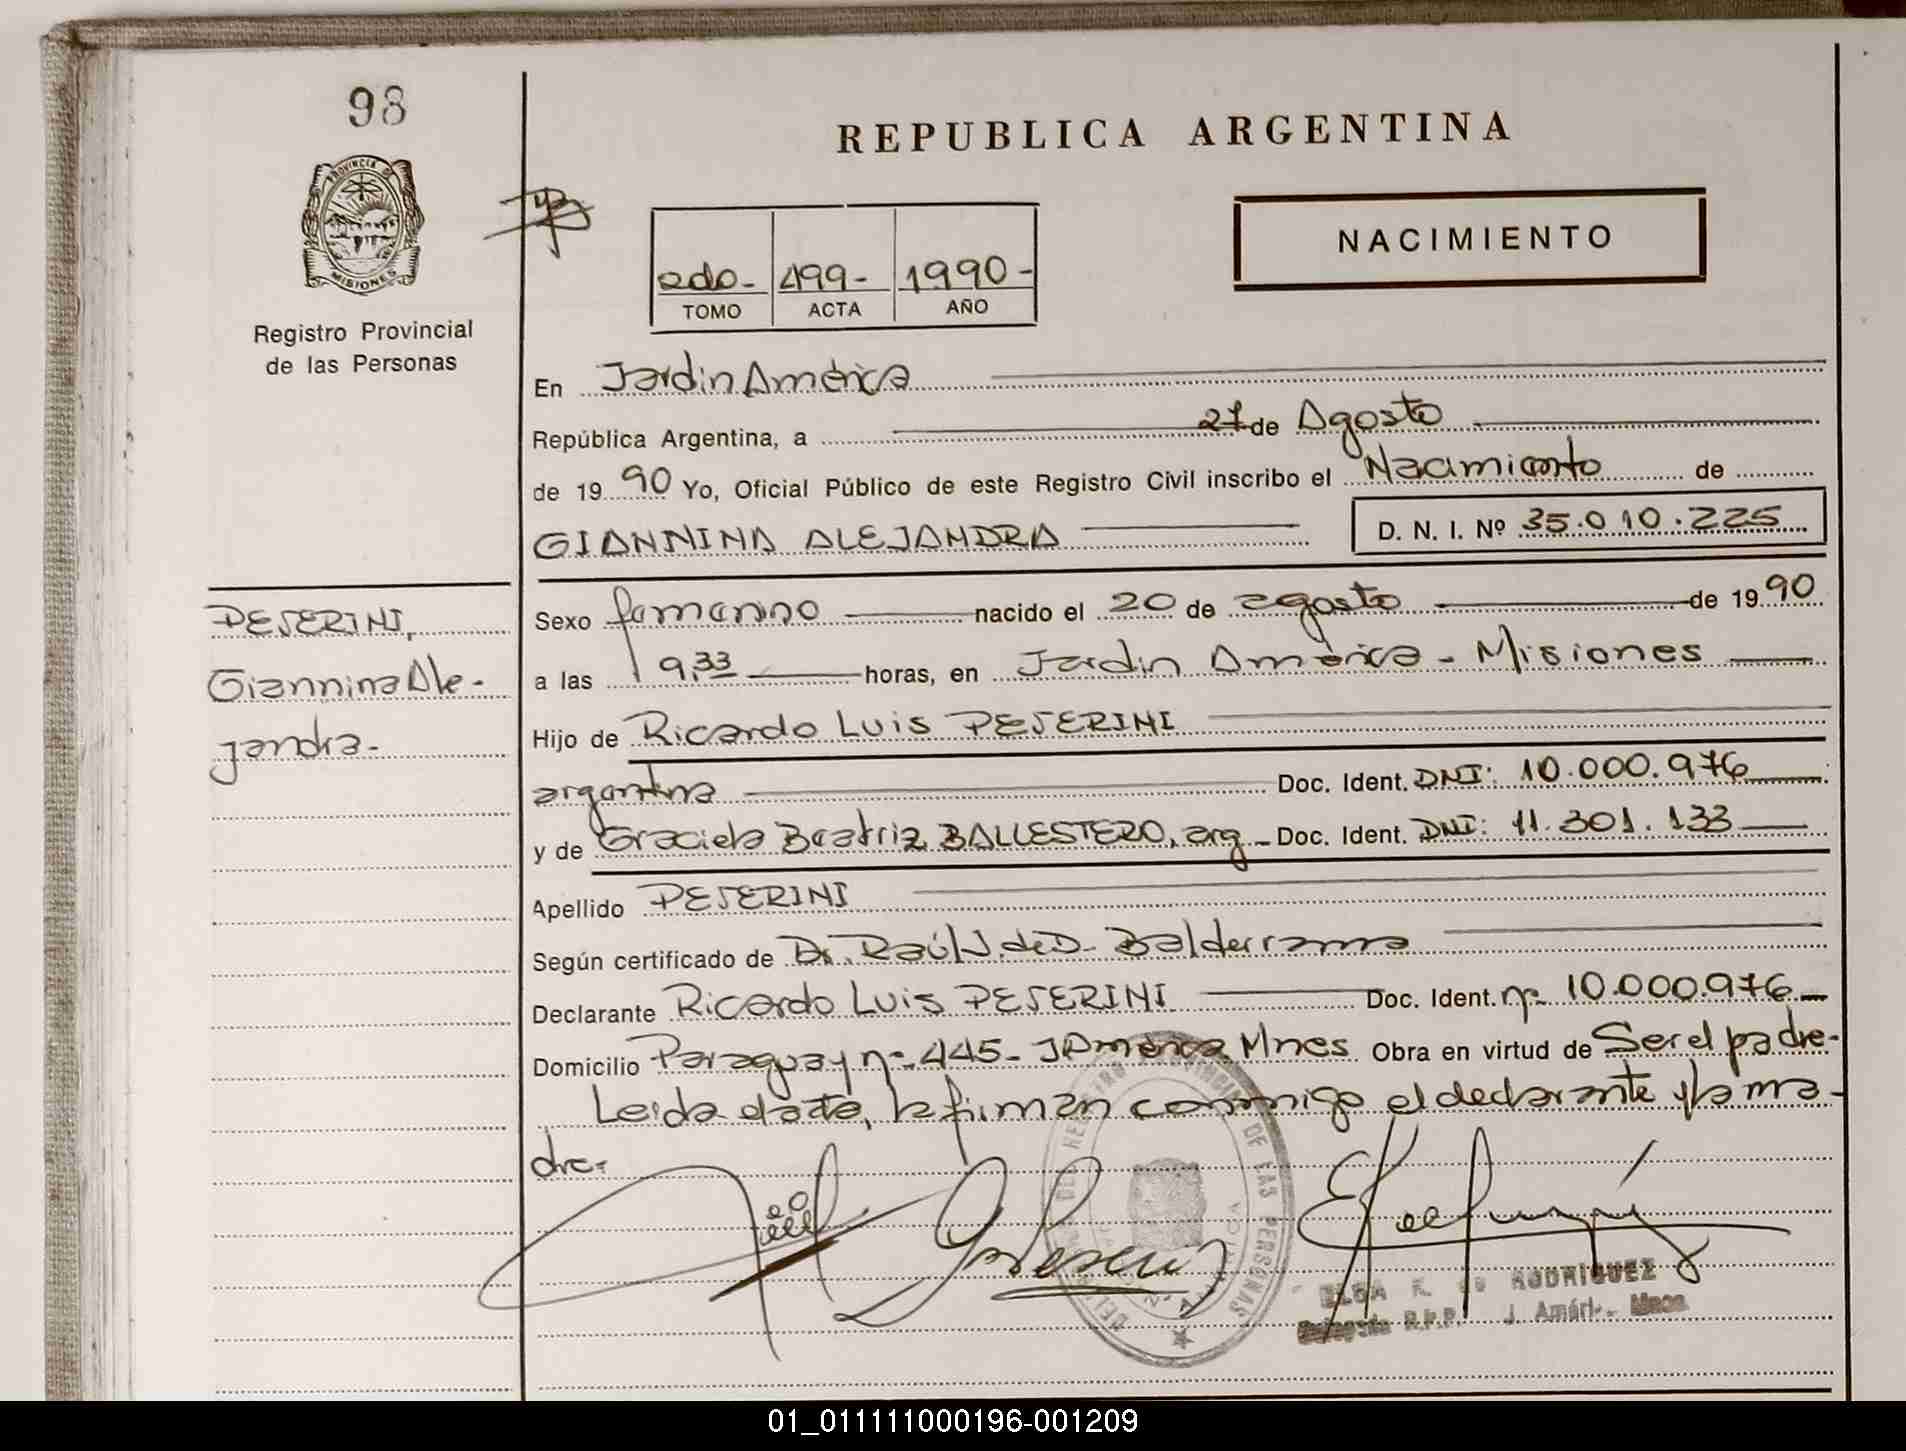 98
PROVINCIA DE
MISIONES
Registro Provincial
de las Personas
REPUBLICA ARGENTINA
2do- 499- 1990-
TOMO ACTA AÑO
NACIMIENTO
En Jardin América
República Argentina, a 27 de Agosto
de 19 90 Yo, Oficial Público de este Registro Civil inscribo el Nacimiento de
GIANNINA ALEJANDRA D. N. I. Nº 35.010.225
PESERINI,
Giannina Ale-
jandra-
Sexo femenino nacido el 20 de agosto de 19 90
a las 9,33 horas, en Jardin América - Misiones
Hijo de Ricardo Luis PESERINI
argentina Doc. Ident. DNI: 10.000.976
y de Graciela Beatriz BALLESTERO, arg - Doc. Ident. DNI: 11.301.133
Apellido PESERINI
Según certificado de Dr. Raúl J. de D. Balderrama
Declarante Ricardo Luis PESERINI Doc. Ident. nº 10.000.976
Domicilio Paraguay nº 445- J América Mnes Obra en virtud de Ser el padre-
Leida el acta, la firman conmigo el declarante y la ma-
dre-
DEL REGISTRO PROVINCIAL DE LAS PERSONAS
ELSA DE RODRIGUEZ
Delegada R.P.P. J. Améri- Mnes
01_011111000196-001209